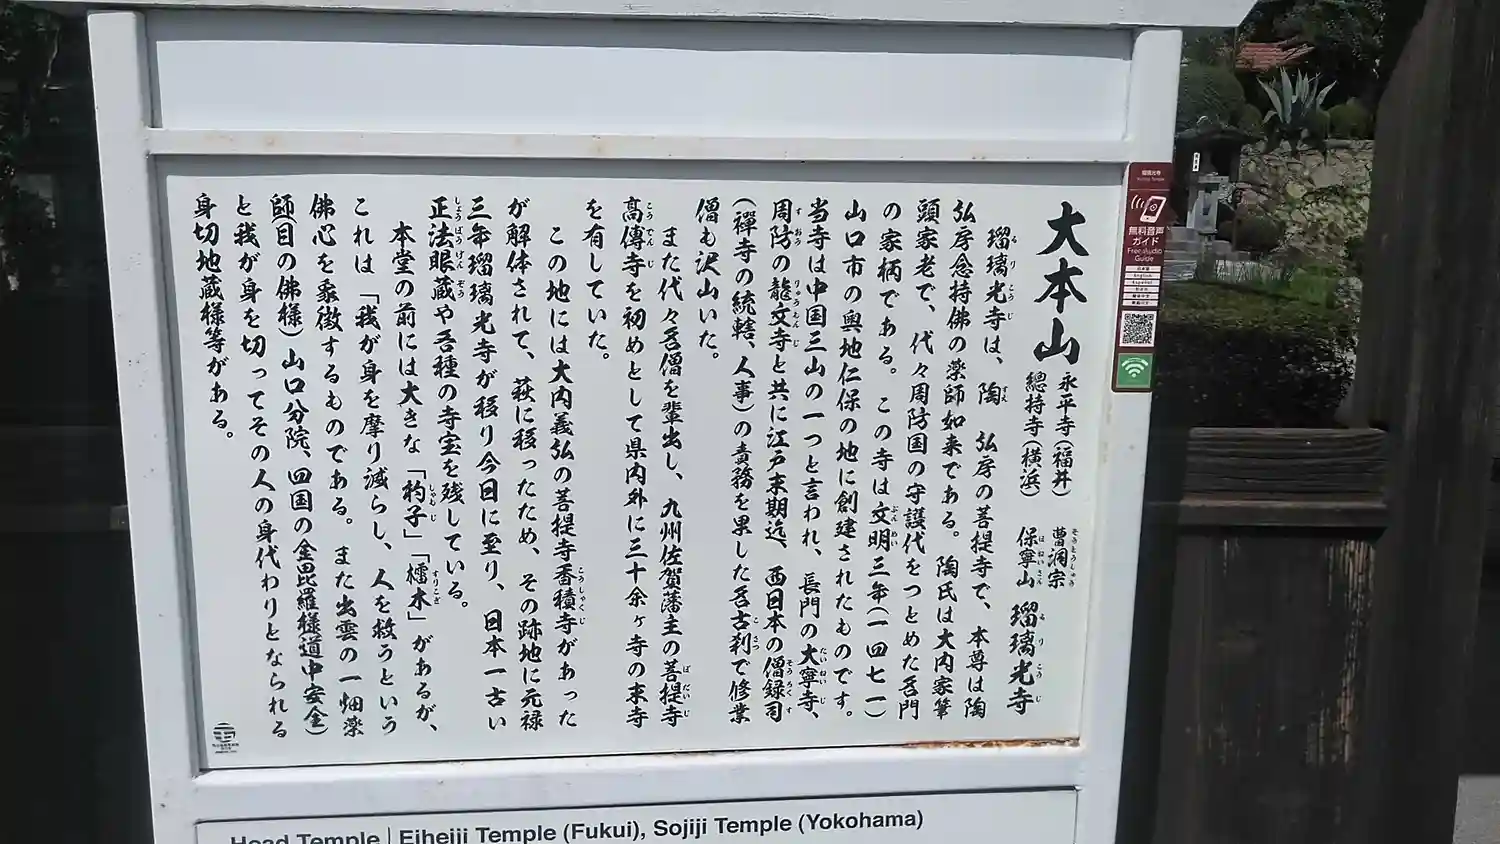 大本山
永平寺(福井)
總持寺(横浜)
曹洞宗
保寧山
瑠璃光寺
瑠璃光寺は、陶 弘房の菩提寺で、本尊は陶
弘房念持佛の薬師如来である。陶氏は大内家筆
頭家老で、代々周防国の守護代をつとめた名門
の家柄である。この寺は文明三年(一四七一)
山口市の奥地仁保の地に創建されたものです。
当寺は中国三山の一つと言われ、長門の大寧寺、
周防の龍文寺と共に江戸末期迄、西日本の僧録司
(禅寺の統轄、人事)の責務を果した名古刹で修業
僧も沢山いた。
また代々名僧を輩出し、九州佐賀藩主の菩提寺
高傳寺を初めとして県内外に三十余ヶ寺の末寺
を有していた。
この地には大内義弘の菩提寺香積寺があった
が解体されて、萩に移ったため、その跡地に元禄
三年瑠璃光寺が移り今日に至り、日本一古い
正法眼蔵や各種の寺宝を残している。
本堂の前には大きな「杓子」「檑木」があるが、
これは「我が身を摩り減らし、人を救うという
佛心を象徴するものである。また出雲の一畑薬
師(目の佛様)山口分院、四国の金毘羅様道中安全)
と我が身を切ってその人の身代わりとなられる
身切地蔵様等がある。
無料音声
ガイド
Free audio
Guide
Head Temple | Eiheiji Temple (Fukui), Sojiji Temple (Yokohama)